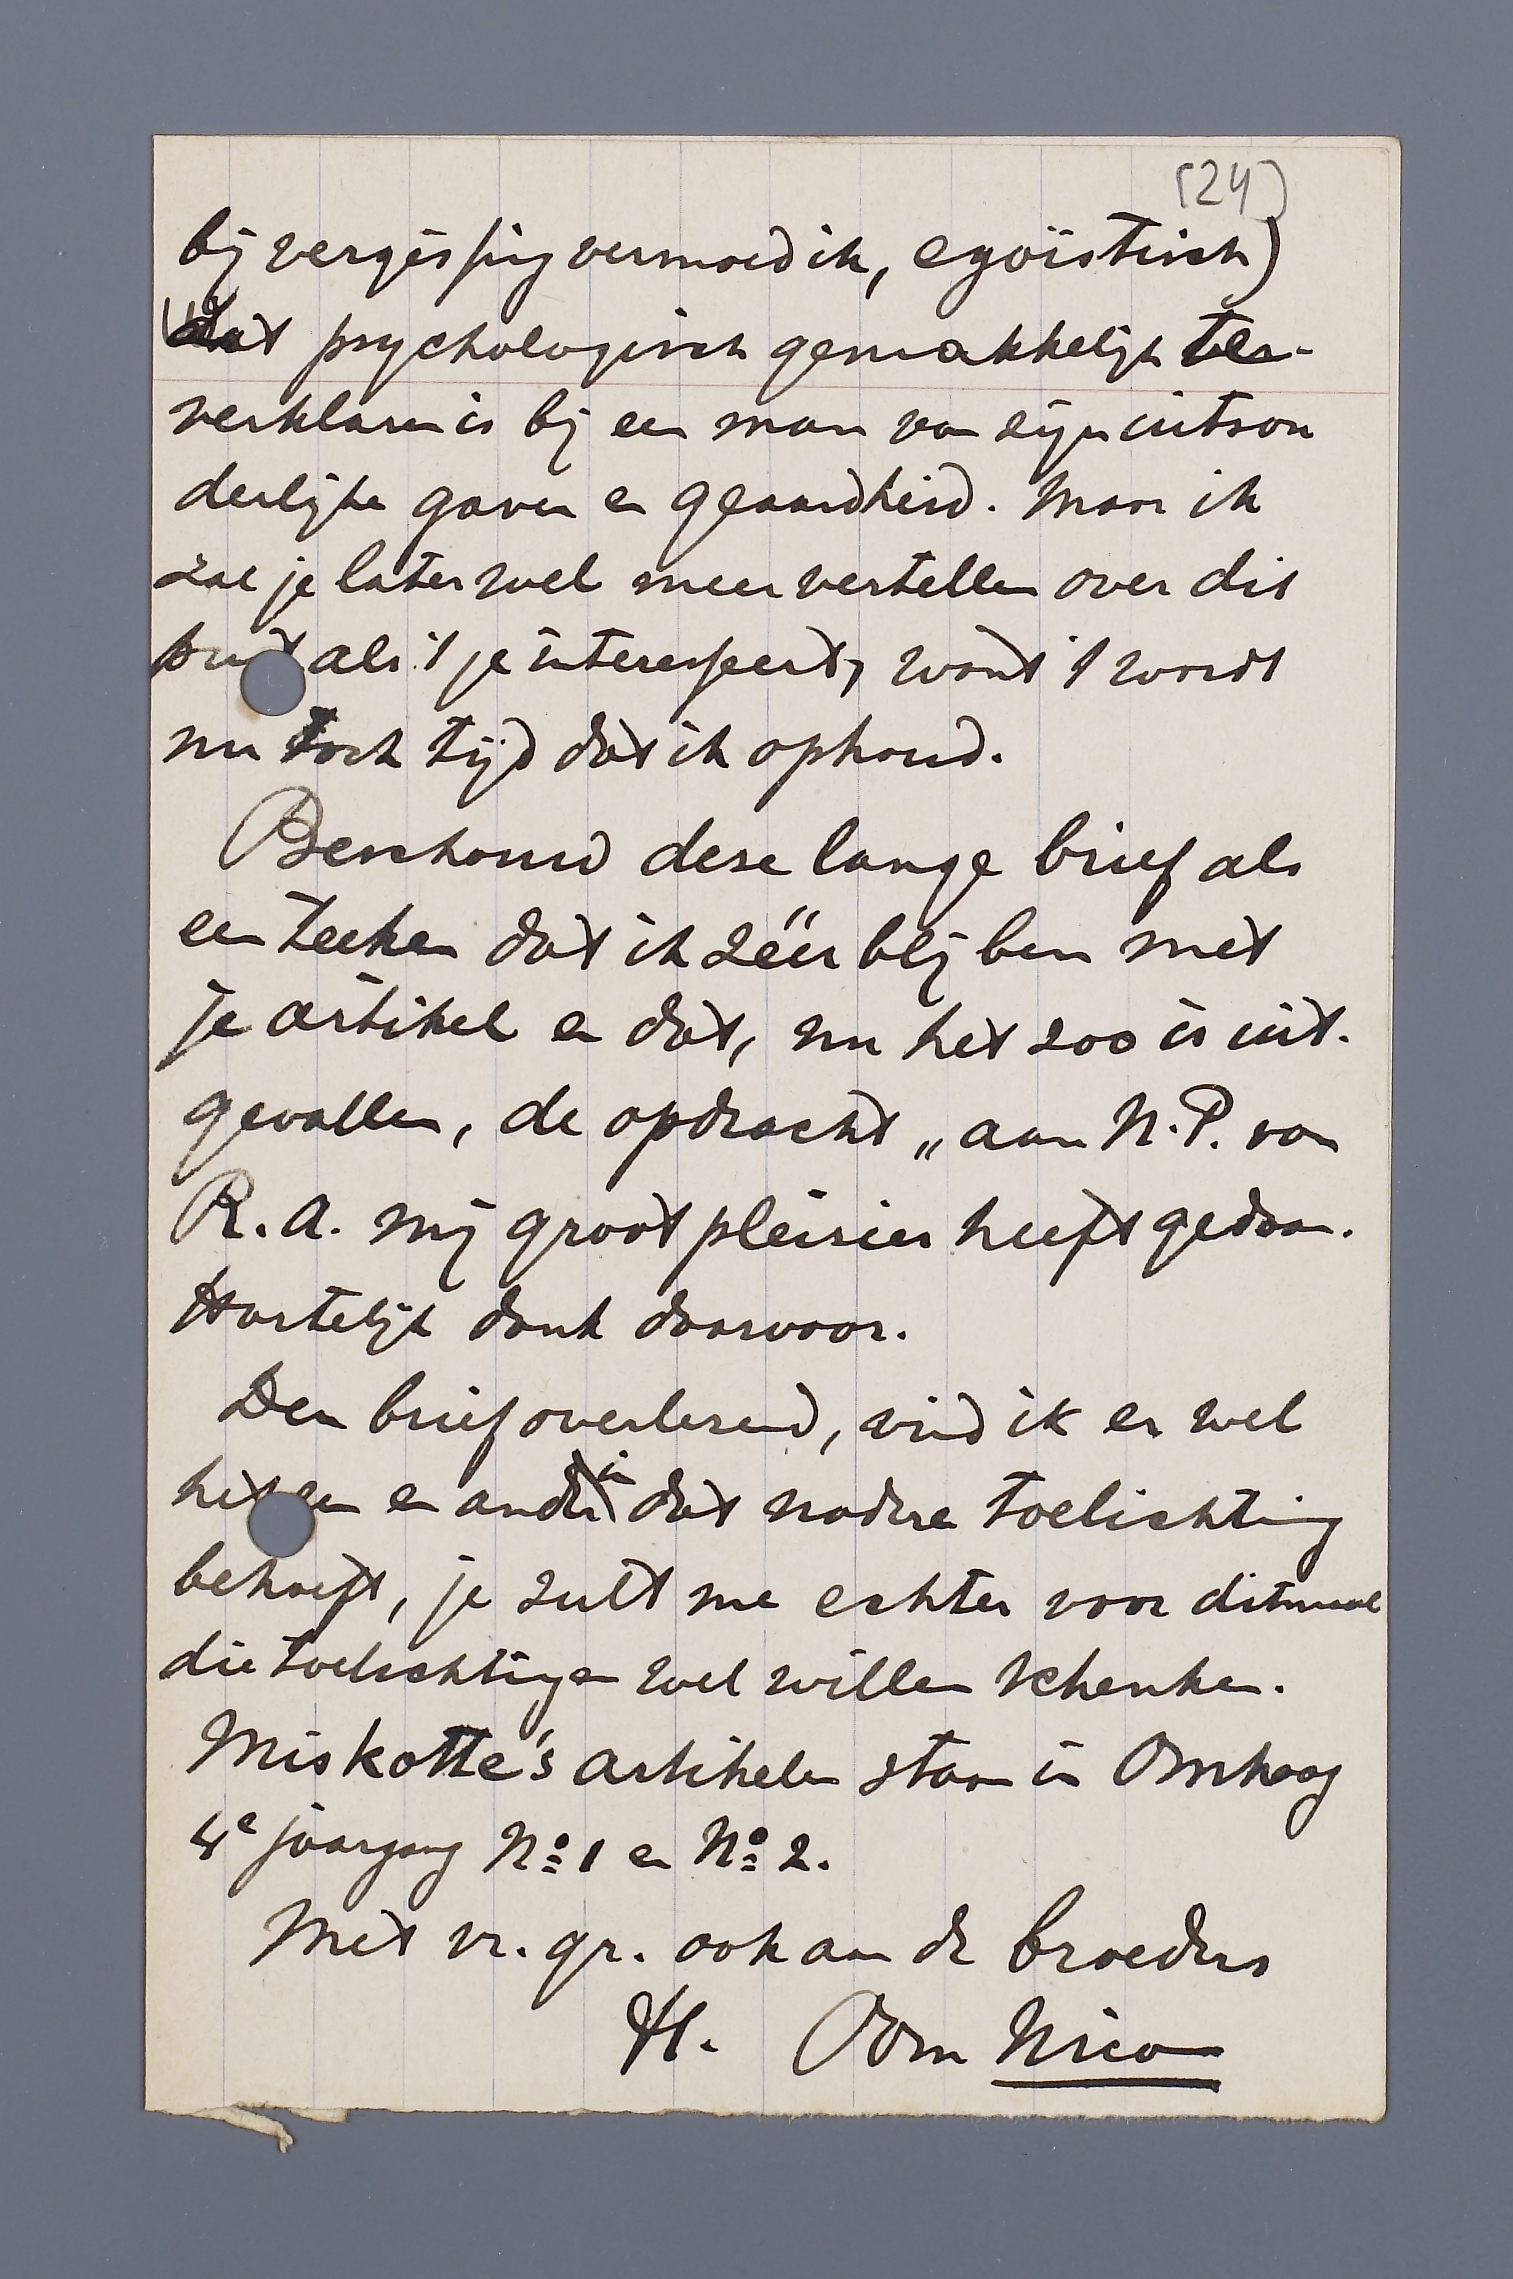 (24)
bij vergissing vermoed ik, egoïstisch)
Wat psychologisch gemakkelijk te
verklaren is bij een man van zijn uitzon
derlijke gaven en geaardheid. Maar ik
zal je later wel meer vertellen over dit
punt als 't je interesseert, want 't wordt
nu toch tijd dat ik ophoud.
Beschouw deze lange brief als
een teeken dat ik zéér blij ben met
je artikel en dat, nu het zoo is uit-
gevallen, de opdracht „aan N.P. van
R.A. mij groot pleisier heeft gedaan.
Hartelijk dank daarvoor.
Den brief overlezend, vind ik er wel
het een en ander in dat nadere toelichting
behoeft, je zult me echter voor ditmaal
die toelichtingen wel willen schenken.
Miskotte's artikelen staan in Omhoog
4e jaargang No 1 en No 2.
Met vr. gr. ook aan de broeders
tt. Oom Nico